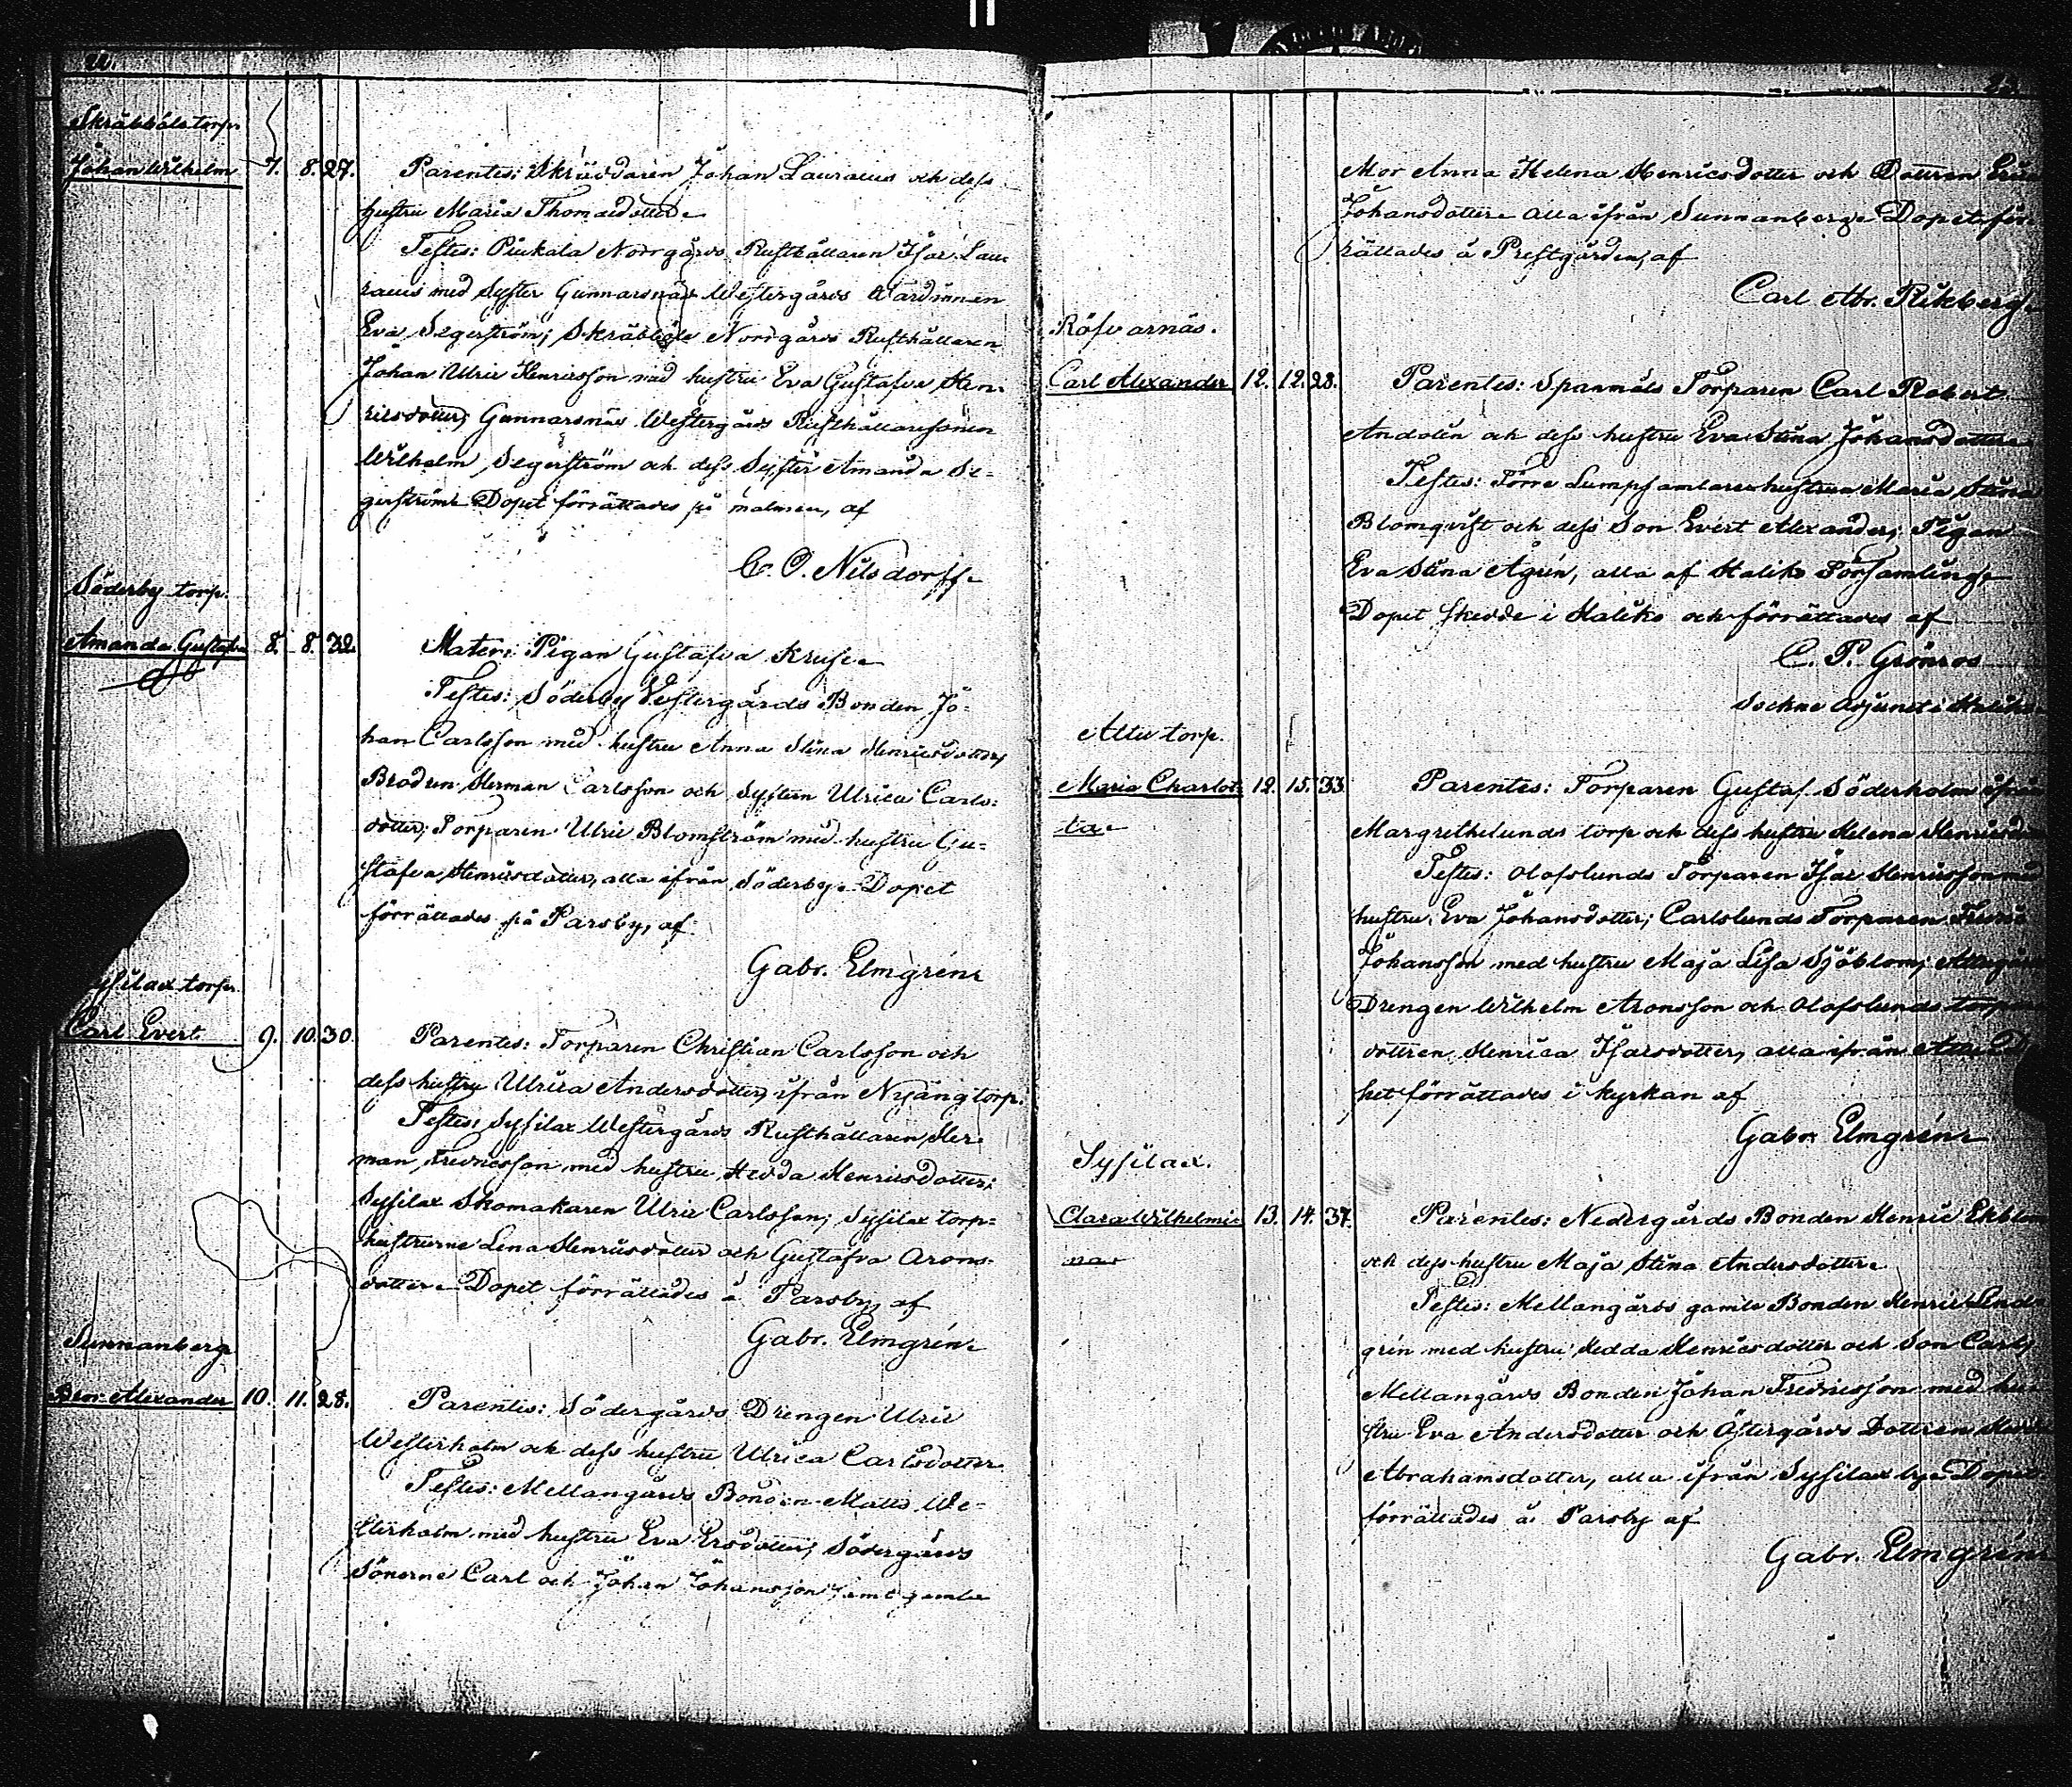 Skräbböle torp.
Johan Wilhelm 7. 8. 27. Parentes: Skräddaren Johan Lauraeus och dess
hustru Maria Thomasdotter.
Testes: Piukala Norrgårds Rusthållaren Isac Lau-
raeus med Syster Gunnarsnäs Westergårds Wärdinnan
Eva Segerström; Skräbböle Norrgårds Rusthållaren
Johan Ulric Henricsson med hustru Eva Gustafva Hen-
ricsdotter; Gunnarsnäs Westergårds Rusthållaresonen
Wilhelm Segerström och dess Syster Amanda Se-
gerström. Dopet förrättades på malmen, af
C. O. Nilsdorff.
Söderby torp.
Amanda Gustafva 8. 8. 32. Mater: Pigan Gustafva Kruse.
Testes: Söderby Vestergårds Bonden Jo-
han Carlsson med hustru Anna Stina Henricsdotter,
Brodren Herman Carlsson och Systern Ulrica Carls-
dotter; Torparen Ulric Blomström med hustru Gu-
stafva Henricsdotter, alla ifrån Söderby. Dopet
förrättades på Parsby, af
Gabr. Elmgrén.
Sysilax torp.
Carl Evert. 9. 10. 30. Parentes: Torparen Christian Carlsson och
dess hustru Ulrica Andersdotter, ifrån Nyäng torp.
Testes: Sysilax Westergårds Rusthållaren Her-
man Fredricsson med hustru Hedda Henricsdotter;
Sysilax Skomakaren Ulric Carlsson; Sysilax torp-
hustrurne Lena Henricsdotter och Gustafva Arons-
dotter. Dopet förrättades å Parsby, af
Gabr. Elmgrén.
Sunnanberg.
Alexander 10. 11. 28. Parentes: Södergårds Drengen Ulric
Westerholm och dess hustru Ulrica Carlsdotter.
Testes: Mellangårds Bonden Matts We-
sterholm med hustru Eva Ersdotter; Södergårds
Sönerne Carl och Johan Johansson samt gamla
Mor Anna Helena Henricsdotter och Dottren
Johansdotter alla ifrån Sunnanberg. Dopet för-
rättades å Prestgården, af
Carl Abr. Rikberg.
Röfvarnäs.
Carl Alexander 12. 12. 28. Parentes: Spanmåls Torparen Carl Robert
Andolin och dess hustru Eva Stina Johansdotter.
Testes: Förre Lumpsamlarehustrun Maria Stina
Blomqvist och dess Son Evert Alexander; Pigan
Eva Stina Ågrén, alla af Haliko Församling.
Dopet skedde i Haliko och förrättades af
C. P. Grönros
Sockne Adjunct i Haliko.
Attu torp.
Maria Charlot- 12. 15. 33. Parentes: Torparen Gustaf Söderholm ifrån
ta. Margrethelunds torp och dess hustru Helena
Testes: Olofslunds Torparen Isac Henricsson med
hustru Eva Johansdotter; Carlslunds Torparen
Johansson med hustru Maja Lisa Sjöblom;
Drengen Wilhelm Aronsson och Olofslunds
dottren Henrica Isacsdotter, alla ifrån Attu
pet förrättades i kyrkan af
Gabr. Elmgrén.
Sysilax.
Clara Wilhelmi- 13. 14. 37. Parentes: Nedergårds Bonden Henric
na. och dess hustru Maja Stina Andersdotter.
Testes: Mellangårds gamle Bonden Henric Lind-
grén med hustru Hedda Henricsdotter och Son Carl;
Mellangårds Bonden Johan Fredricsson med hu-
stru Eva Andersdotter och Östergårds Dottren
Abrahamsdotter, alla ifrån Sysilax by. Dopet
förrättades å Parsby af
Gabr. Elmgrén.